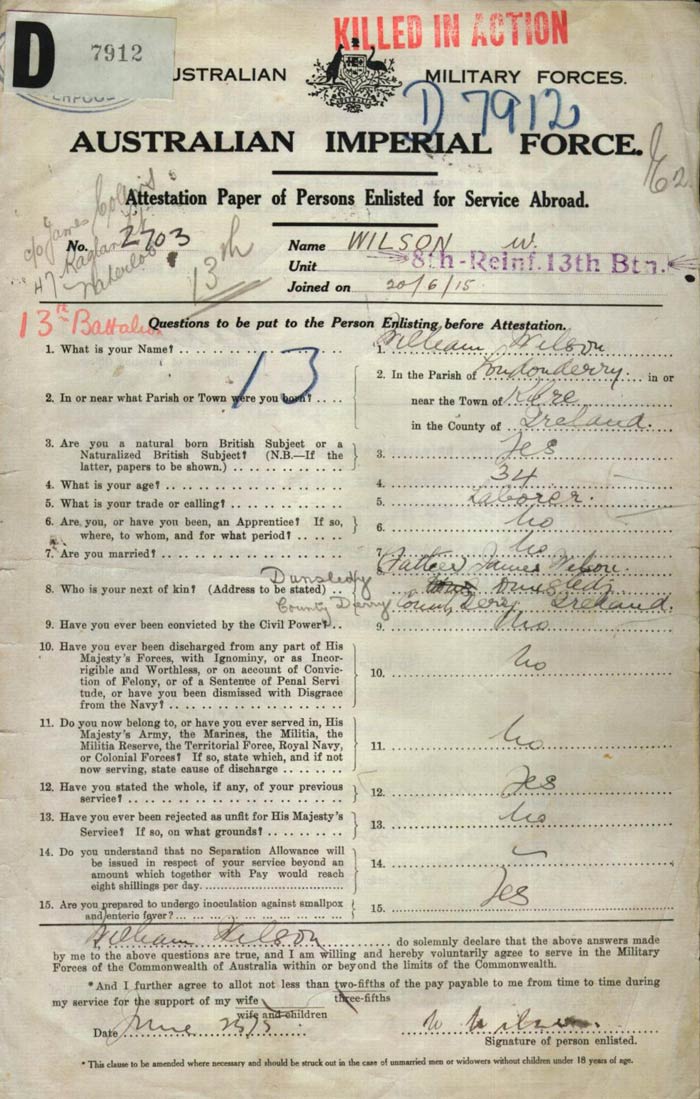 KILLED IN ACTION
D 7912
AUSTRALIAN MILITARY FORCES.
D 7912
AUSTRALIAN IMPERIAL FORCE.
Attestation Paper of Persons Enlisted for Service Abroad.
c/o James
47 Raglan St
Waterloo
No. 2703
13th
Name WILSON W.
Unit 8th-Reinf. 13th Btn.
Joined on 20/6/15.
13th Battalion
Questions to be put to the Person Enlisting before Attestation.
13
1. What is your Name? 1. William Wilson
2. In or near what Parish or Town were you born? 2. In the Parish of Londonderry in or
near the Town of
in the County of Ireland.
3. Are you a natural born British Subject or a
Naturalized British Subject? (N.B.—If the
latter, papers to be shown.) 3. Yes
4. What is your age? 4. 34
5. What is your trade or calling? 5. Laborer.
6. Are you, or have you been, an Apprentice? If so,
where, to whom, and for what period? 6. No
7. Are you married? 7. No
8. Who is your next of kin? (Address to be stated) 8. Father James Wilson
Dunsledy
County Derry County Derry Ireland.
9. Have you ever been convicted by the Civil Power? 9. No
10. Have you ever been discharged from any part of His
Majesty's Forces, with Ignominy, or as Incor-
rigible and Worthless, or on account of Convic-
tion of Felony, or of a Sentence of Penal Servi
tude, or have you been dismissed with Disgrace
from the Navy? 10. No
11. Do you now belong to, or have you ever served in, His
Majesty's Army, the Marines, the Militia, the
Militia Reserve, the Territorial Force, Royal Navy,
or Colonial Forces? If so, state which, and if not
now serving, state cause of discharge 11. No
12. Have you stated the whole, if any, of your previous
service? 12. Yes
13. Have you ever been rejected as unfit for His Majesty's
Service? If so, on what grounds? 13. No
14. Do you understand that no Separation Allowance will
be issued in respect of your service beyond an
amount which together with Pay would reach
eight shillings per day. 14.
15. Are you prepared to undergo inoculation against smallpox
and enteric fever? 15. Yes
William Wilson do solemnly declare that the above answers made
by me to the above questions are true, and I am willing and hereby voluntarily agree to serve in the Military
Forces of the Commonwealth of Australia within or beyond the limits of the Commonwealth.
* And I further agree to allot not less than two-fifths of the pay payable to me from time to time during
three-fifths
my service for the support of my wife
wife and children
Date June W Wilson
Signature of person enlisted.
* This clause to be amended where necessary and should be struck out in the case of unmarried men or widowers without children under 18 years of age.